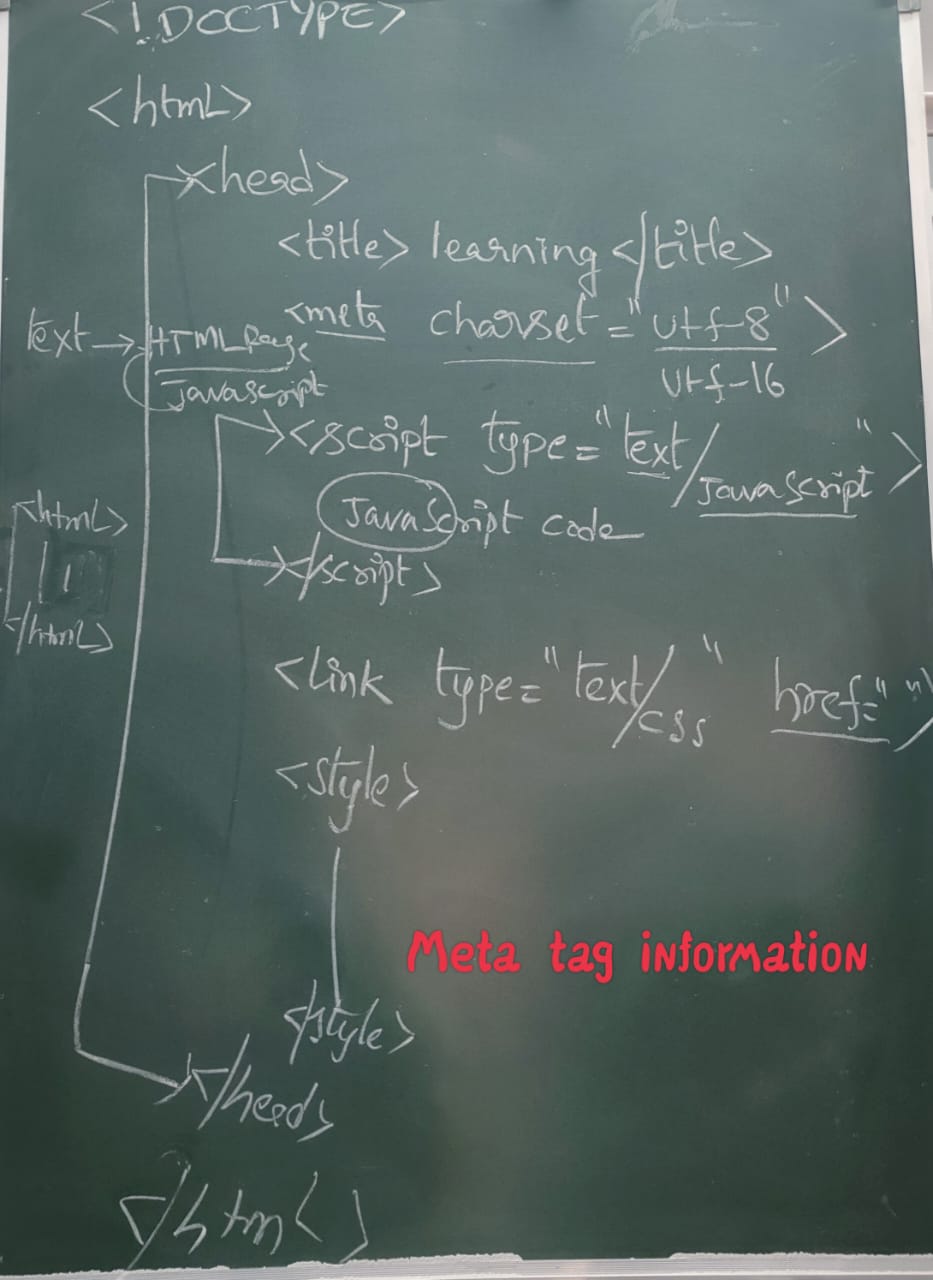 <!DOCTYPE>
<html>
<head>
<title> learning </title>
<meta charset="utf-8">
utf-16
text → HTML Page
Javascript
<script type="text/Javascript">
JavaScript code
</script>
<html>
</html>
<link type="text/css" href="">
<style>
Meta tag information
</style>
</head>
</html>